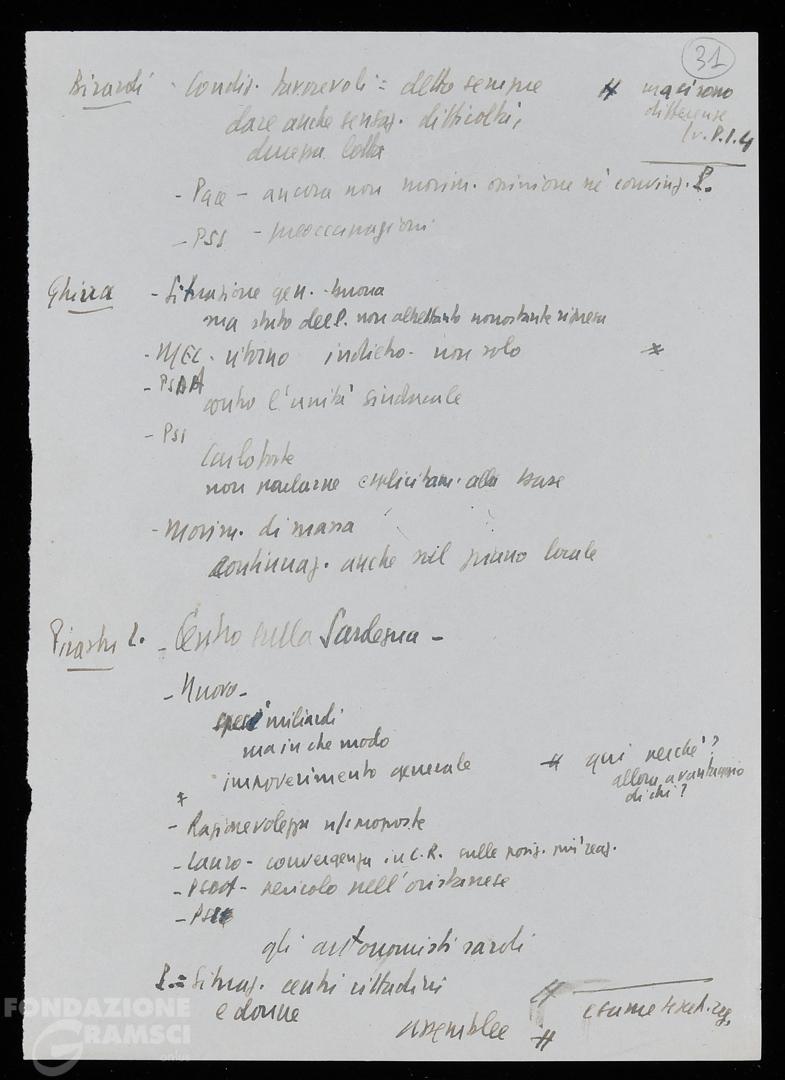 31
Birardi - Condiz. favorevoli = detto sempre # ma ci sono
differenze
(v. P.1.4
dare anche sensaz. difficoltà,
durezza lotta
- Pace - ancora non movim. opinione nè convinz. P.
- PSI - preoccupazioni
Ghirra - Situazione gen. buona
ma stato del P. non altrettanto nonostante ripresa
- MEC - ritorno indietro - non solo *
- PSdA
contro l'unità sindacale
- PSI
Carloforte
non parlarne esplicitam. alla base
- Movim. di massa
continuaz. anche sul piano locale
Pirastu L. - Centro sulla Sardegna -
- Nuoro -
spesi miliardi
ma in che modo
impoverimento generale # qui perché?
allora a vantaggio
di chi?
*
- Ragionevolezza n/ proposte
- Lauro - convergenza in C.R. sulle posiz. più reaz.
- PSdA - pericolo nell'oristanese
- PSI
gli autonomisti sardi
P. = Situaz. centri cittadini
e donne
assemblee # esame